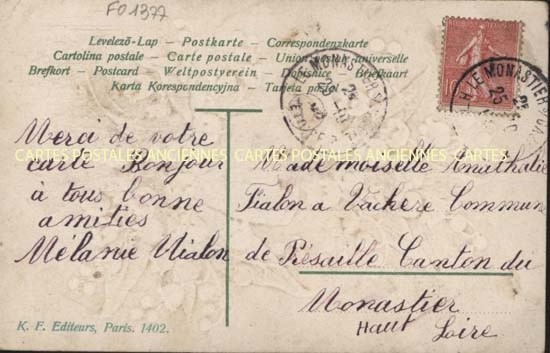 FO1377
Levelező-Lap - Postkarte - Correspondenzkarte
Cartolina postale - Carte postale - Union postale universelle
Brefkort - Postcard - Weltpostverein - Dopisnice - Briefkaart
Karta Korespondencyjna - Tarjeta postal
LE MONASTIER
Merci de votre
carte Bonjour
à tous bonne
amitiés
Mélanie Vialon
CARTES POSTALES ANCIENNES CARTES POSTALES ANCIENNES CARTES POSTALES ANCIENNES
Mademoiselle Nathalie
Fialon a Vachere Commune
de Présaille Canton du
Monastier
Haut Loire
K. F. Editeurs, Paris. 1402.